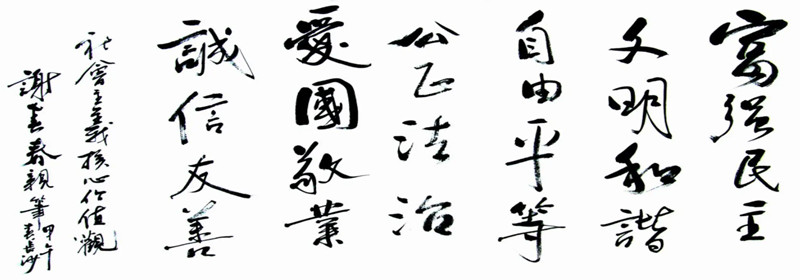 富強民主
文明和諧
自由平等
公正法治
愛國敬業
誠信友善
社會主義核心价值觀
謝春親筆 甲午 長沙